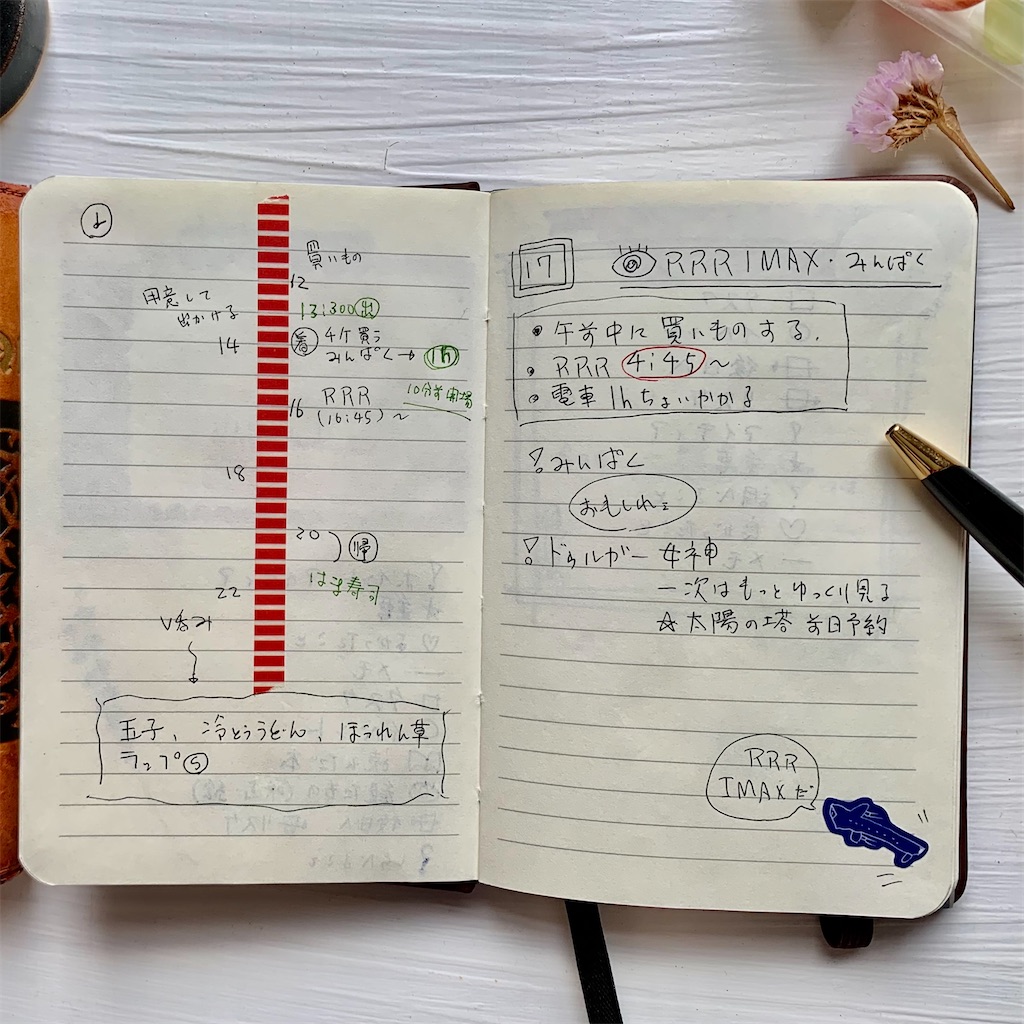 買いもの
12
用意して
出かける
13:300 出
14
着 4ケ買う
みんぱく→ 1h
16 RRR
(16:45)〜
10分前開場
18
20 帰
はま寿司
22
玉子、冷とううどん、ほうれん草
ラップ⑤
17 RRR IMAX・みんぱく
• 午前中に買いものする.
• RRR 4:45〜
• 電車1hちょいかかる
! みんぱく
おもしれェ
! ドゥルガー女神
一次はもっとゆっくり見る
☆太陽の塔 前日予約
RRR
IMAXだ